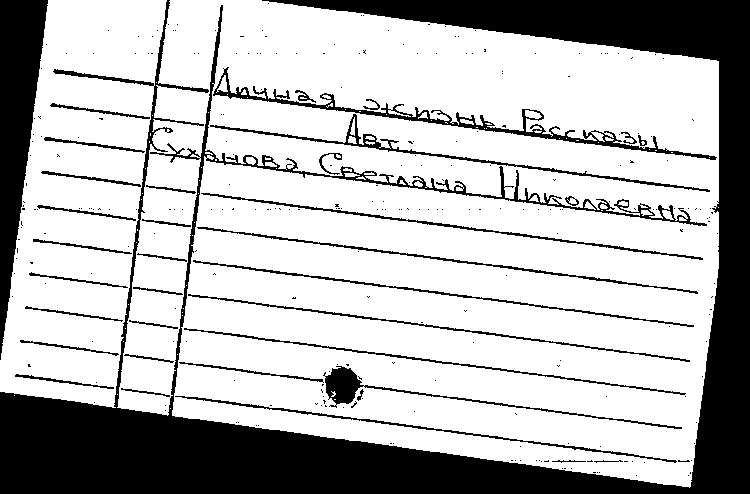 Личная жизнь. Рассказы.
Авт.:
Суханова, Светлана Николаевна